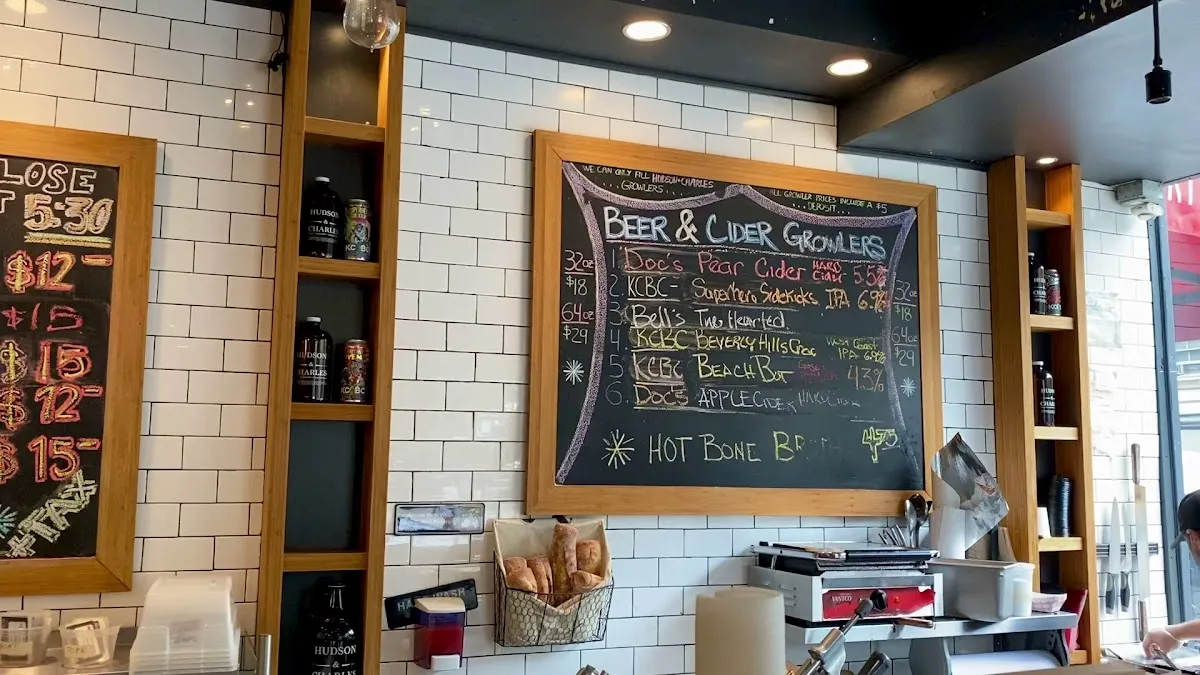 LOSE
5:30
$12
$15
$15
$12
$15
+TAX
HUDSON
&
CHARLES
KCBC
HUDSON
&
CHARLES
KCBC
HUDSON
&
CHARLES
WE CAN ONLY FILL HUDSON + CHARLES
GROWLERS...
ALL GROWLER PRICES INCLUDE A $5
DEPOSIT...
BEER & CIDER GROWLERS
32oz
$18
64oz
$29
1. Doc's Pear Cider HARD Cider 5.5%
2. KCBC- Superhero Sidekicks IPA 6.9%
3. Bell's Two Hearted
4. KCBC BEVERLY HILLS WEST COAST IPA 6.9%
5. KCBC BEACH BUT 4.3%
6. Doc's APPLE CIDER HARD CIDER
32oz
$18
64oz
$29
HOT BONE